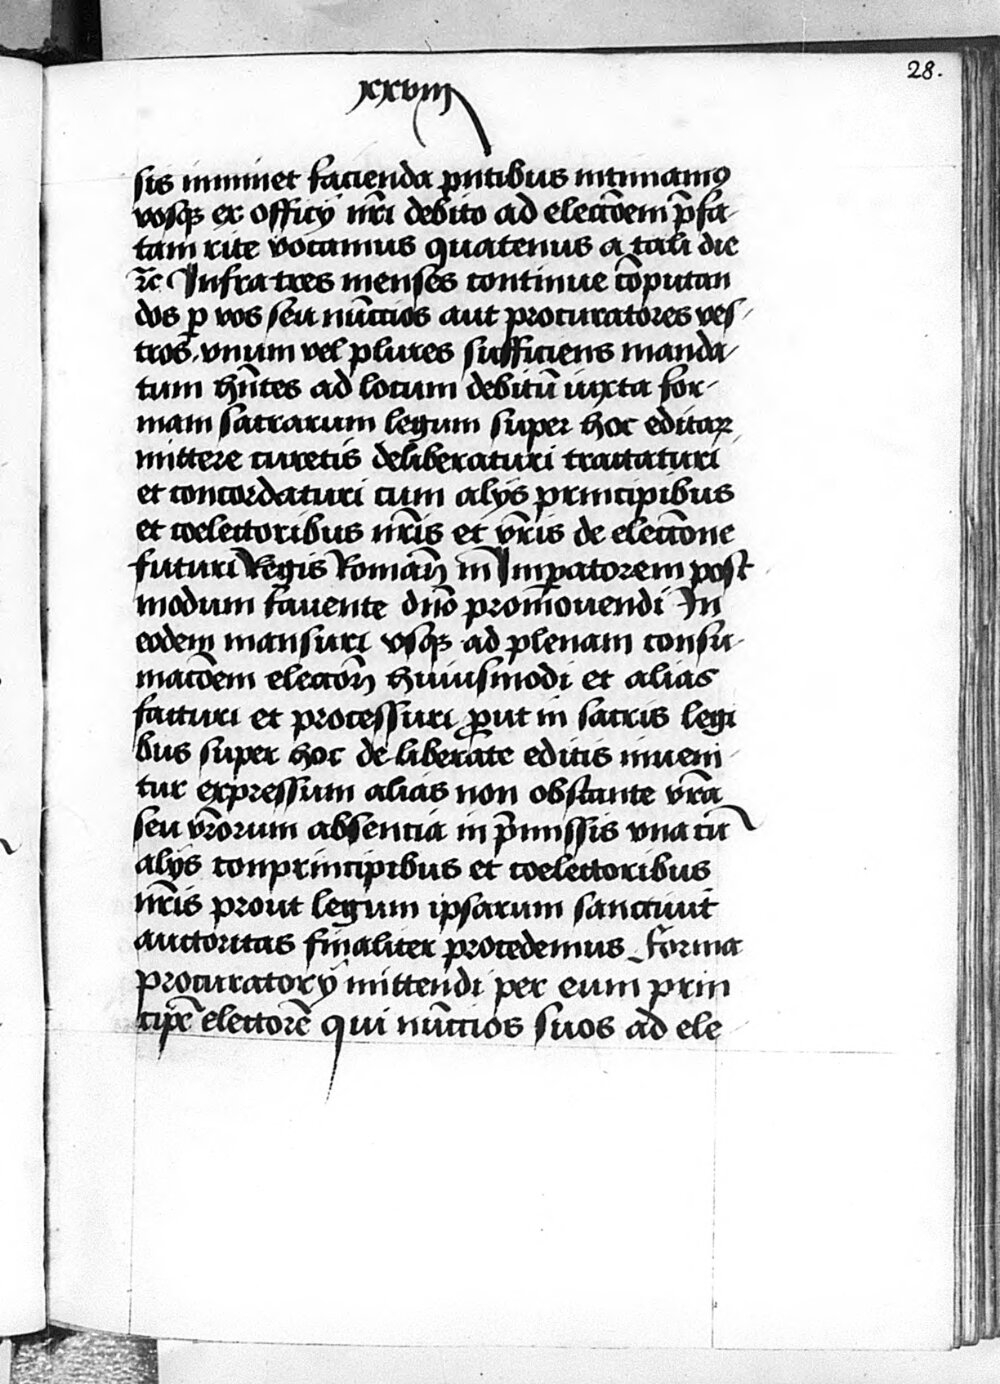 28.
xxviij
sis iminet facienda p̄ntibus intimamꝰ
vosqꝫ ex officij nr̄i debito ad electōem p̄fa-
tam rite vocamus quatenus a tali die
⁊c̄ Infra tres menses continue cōputan
dos ꝑ vos seu nūccios aut procuratores ves-
tros vnum vel plures sufficiens manda-
tum hn̄tes ad locum debitū iuxta for-
mam sacrarum legum super hoc editaꝝ
mittere curetis deliberaturi tractaturi
et concordaturi cum alijs principibus
et coelectoribus nr̄is et vr̄is de electōne
futuri Regis Romanͫ in̄ Imꝑatorem post
modum fauente dn̄o promouendi In
eodem mansuri vsqꝫ ad plenam consu-
matōem electōn̄ huiusmodi et alias
facturi et processuri ꝓut in sacris legi
bus super hoc deliberate editis inueni-
tur expressum alias non obstante vr̄a
seu vr̄orum absencia in p̄missis vna cū
alijs conprincipibus et coelectoribus
nr̄is prout legum ipsarum sanctiuit
auctoritas finaliter procedemus Forma
procuratorij mittendi per eum prin
cipē electorē qui nūccios suos ad ele-